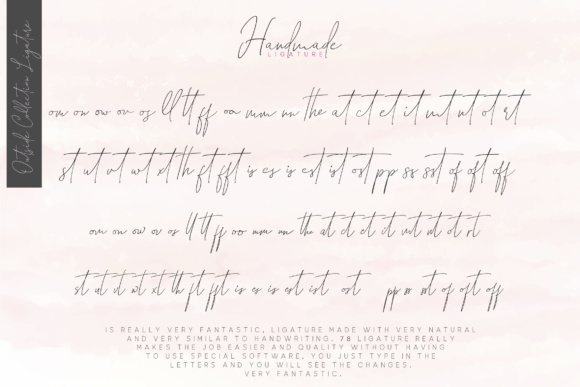 Outside Collection Ligature
Handmade
LIGATURE
om on ow ov os ll tt ff oa mm nn the at ct et it mt nt ot rt
st ut vt wt xt th ft fft is es is est ist ost pp ss sst of oft off
om on ow ov os ll tt ff oo mm nn the at ct et it mt nt ot rt
st ut vt wt xt th ft fft is es is est ist ost pp rr rrt of oft off
IS REALLY VERY FANTASTIC, LIGATURE MADE WITH VERY NATURAL
AND VERY SIMILAR TO HANDWRITING. 78 LIGATURE REALLY
MAKES THE JOB EASIER AND QUALITY WITHOUT HAVING
TO USE SPECIAL SOFTWARE, YOU JUST TYPE IN THE
LETTERS AND YOU WILL SEE THE CHANGES.
VERY FANTASTIC.